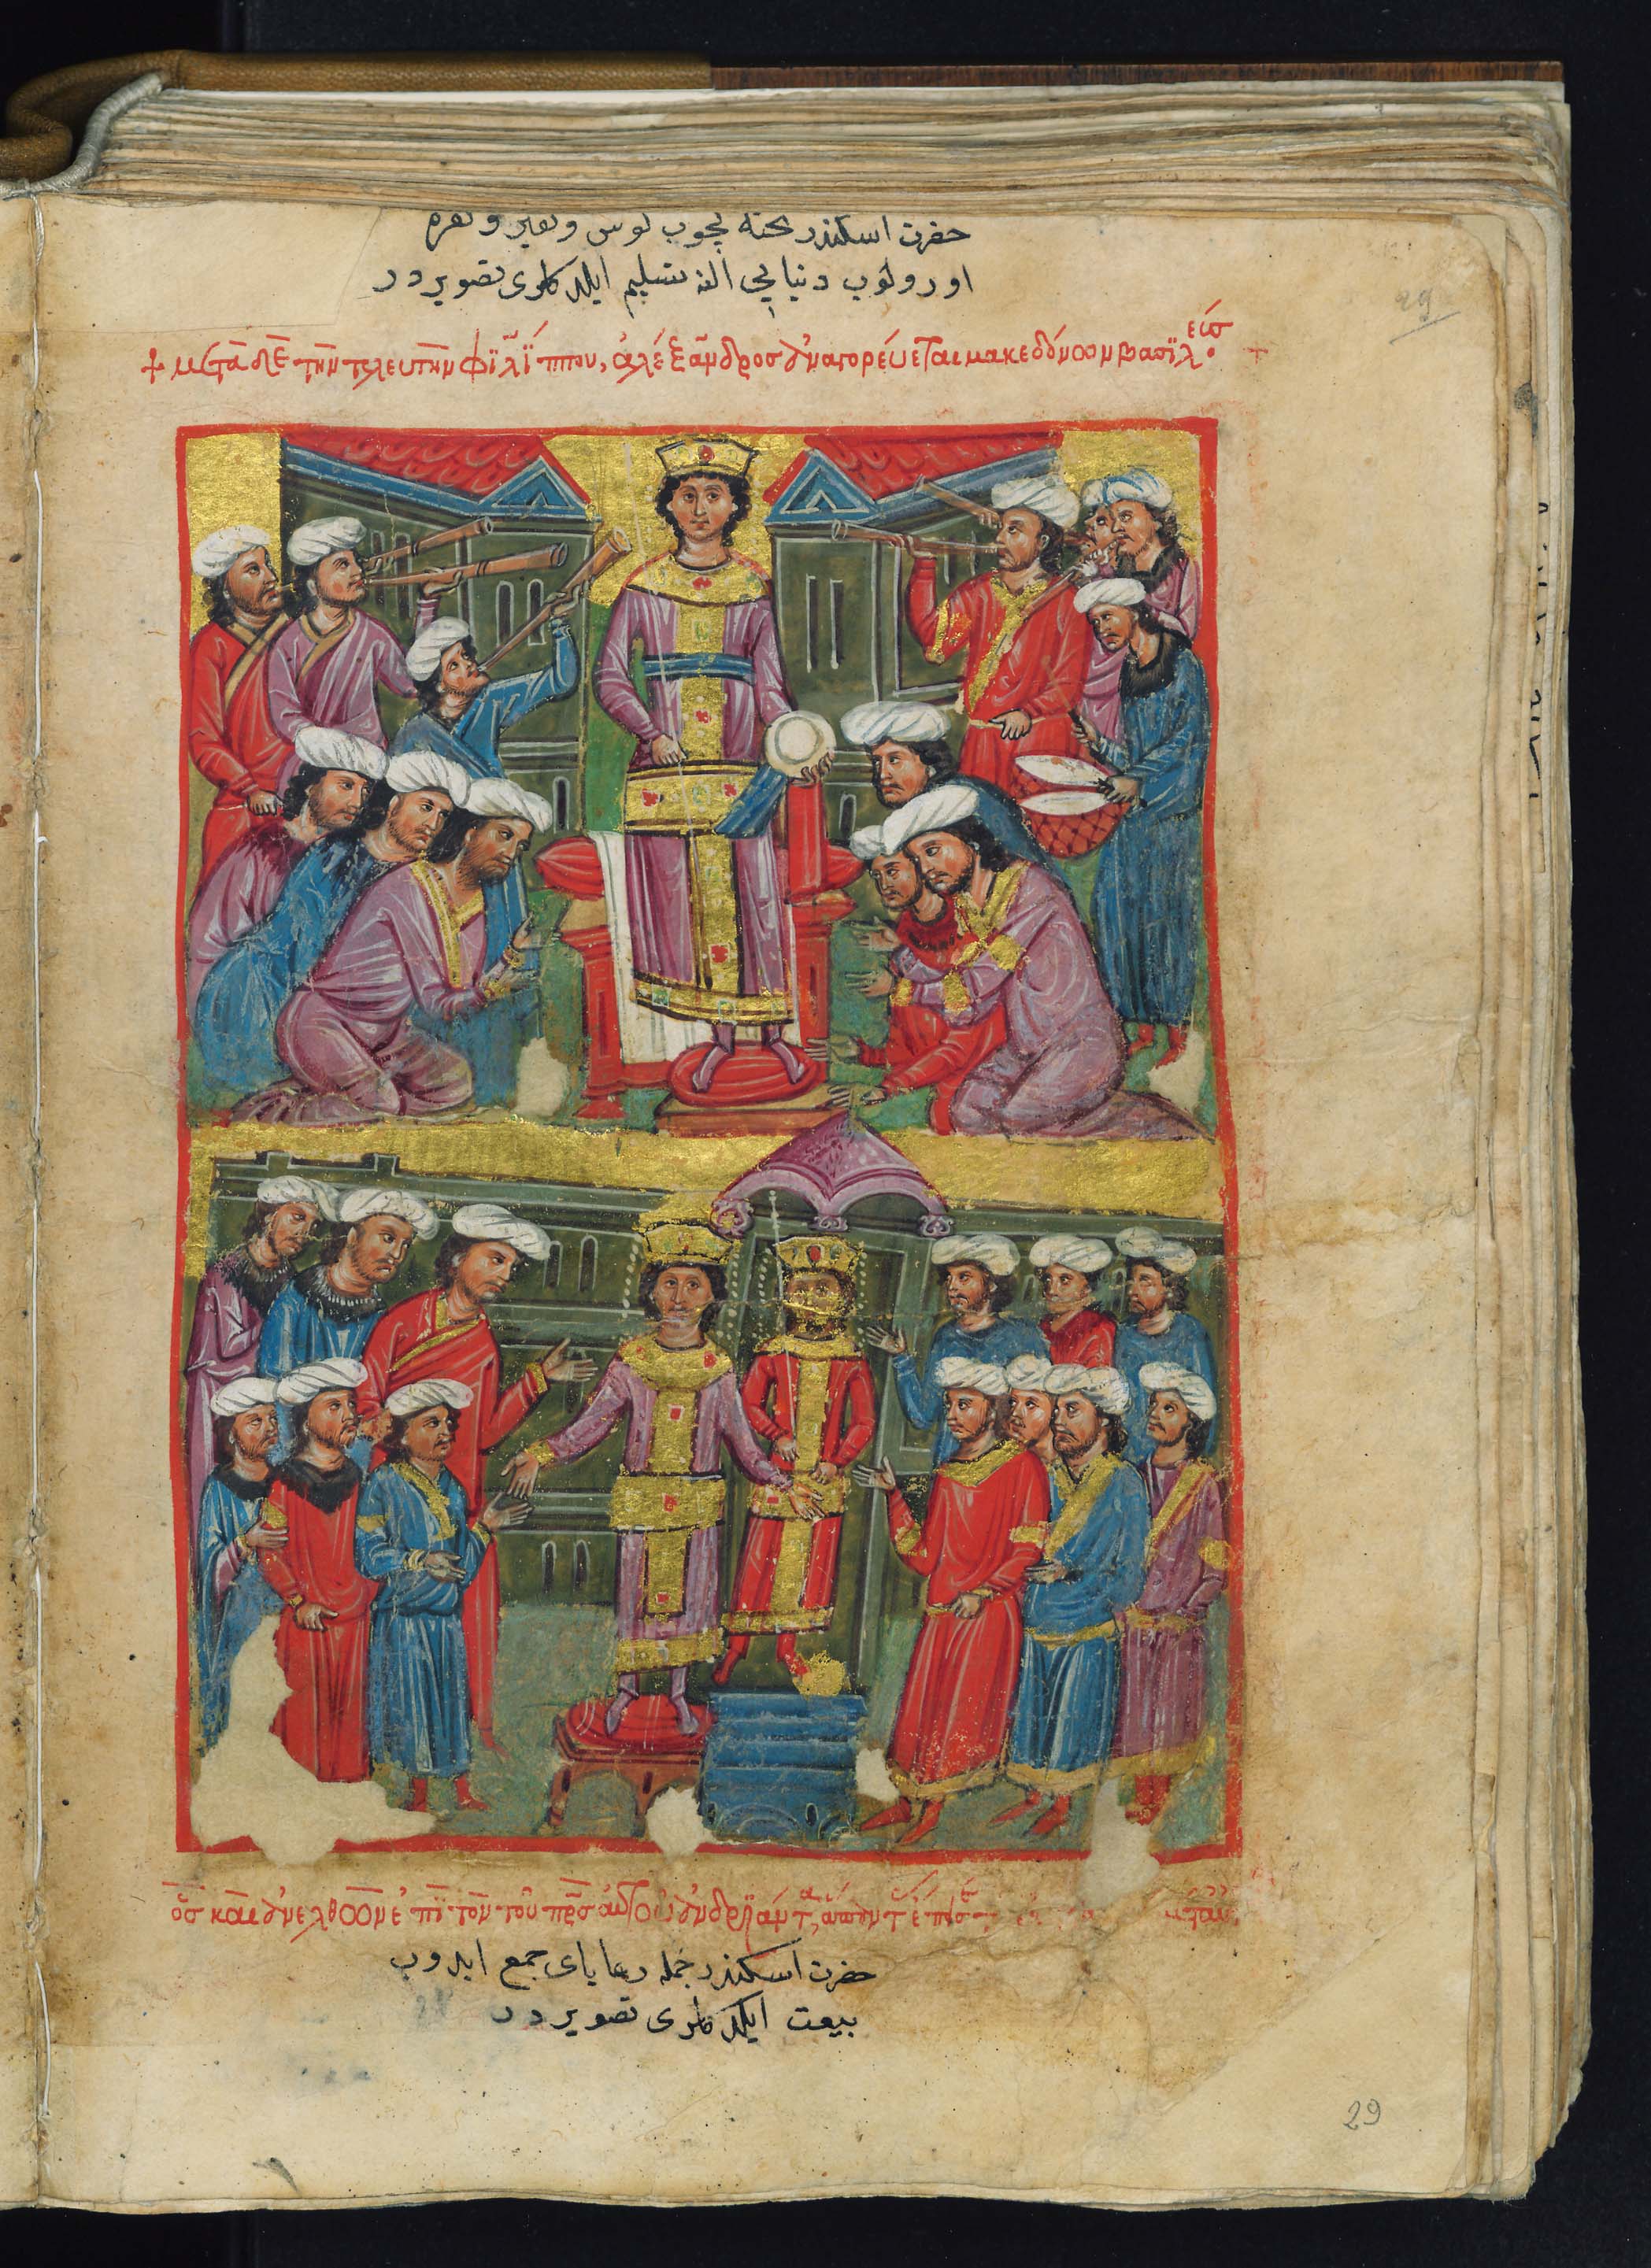 حضرت اسكندر تخته چقوب كوس و نفير و نقره
اورولوب دنيايى الينه تسليم ايلدكلرى تصويردر
29
εως
+ μετὰ δὲ τὴν τελευτὴν φιλίππου, ἀλέξανδρος ἀναγορεύεται μακεδόνων βασιλ
ὃς καὶ ἀνελθὼν ἐπὶ τὸν τοῦ πρς αὐτοῦ ἀνδριάντα
حضرت اسكندر جمله رعاياى جمع ايدوب
بيعت ايلدكلرى تصويردر
29